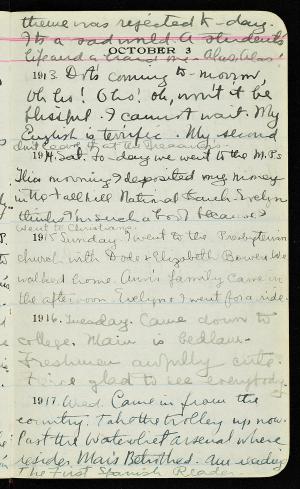 theme was rejected to-day.
It's a sad world a students'
life and a hard one. Alas, Alas!
OCTOBER 3
1913 Dots coming to-morrow,
Oh his! Oh his! oh, won't it be
blissful. I cannot wait. My
English is terrific. My second
1914. Sat. To-day we went to the M.P's
This morning I deposited my money
in the National Bank. Evelyn
thinks I'm such a because I
went to Christians.
1915 Sunday. I went to the Presbyterian
church with Dode & Elizabeth Bower. We
walked home. Ann's family came in
the afternoon. Evelyn & I went for a ride.
1916. Tuesday. Came down to
college. Main is bedlam.
Freshmen awfully cute.
glad to see everybody
1917. Wed. Came in from the
country. Take the trolley up now.
Past the Watervliet Arsenal where
resides Mai's Betrothed. Am reading
The First Spanish Reader.